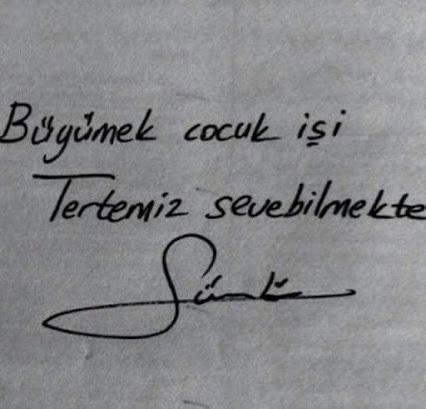 Büyümek cocuk işi
Tertemiz sevebilmekte